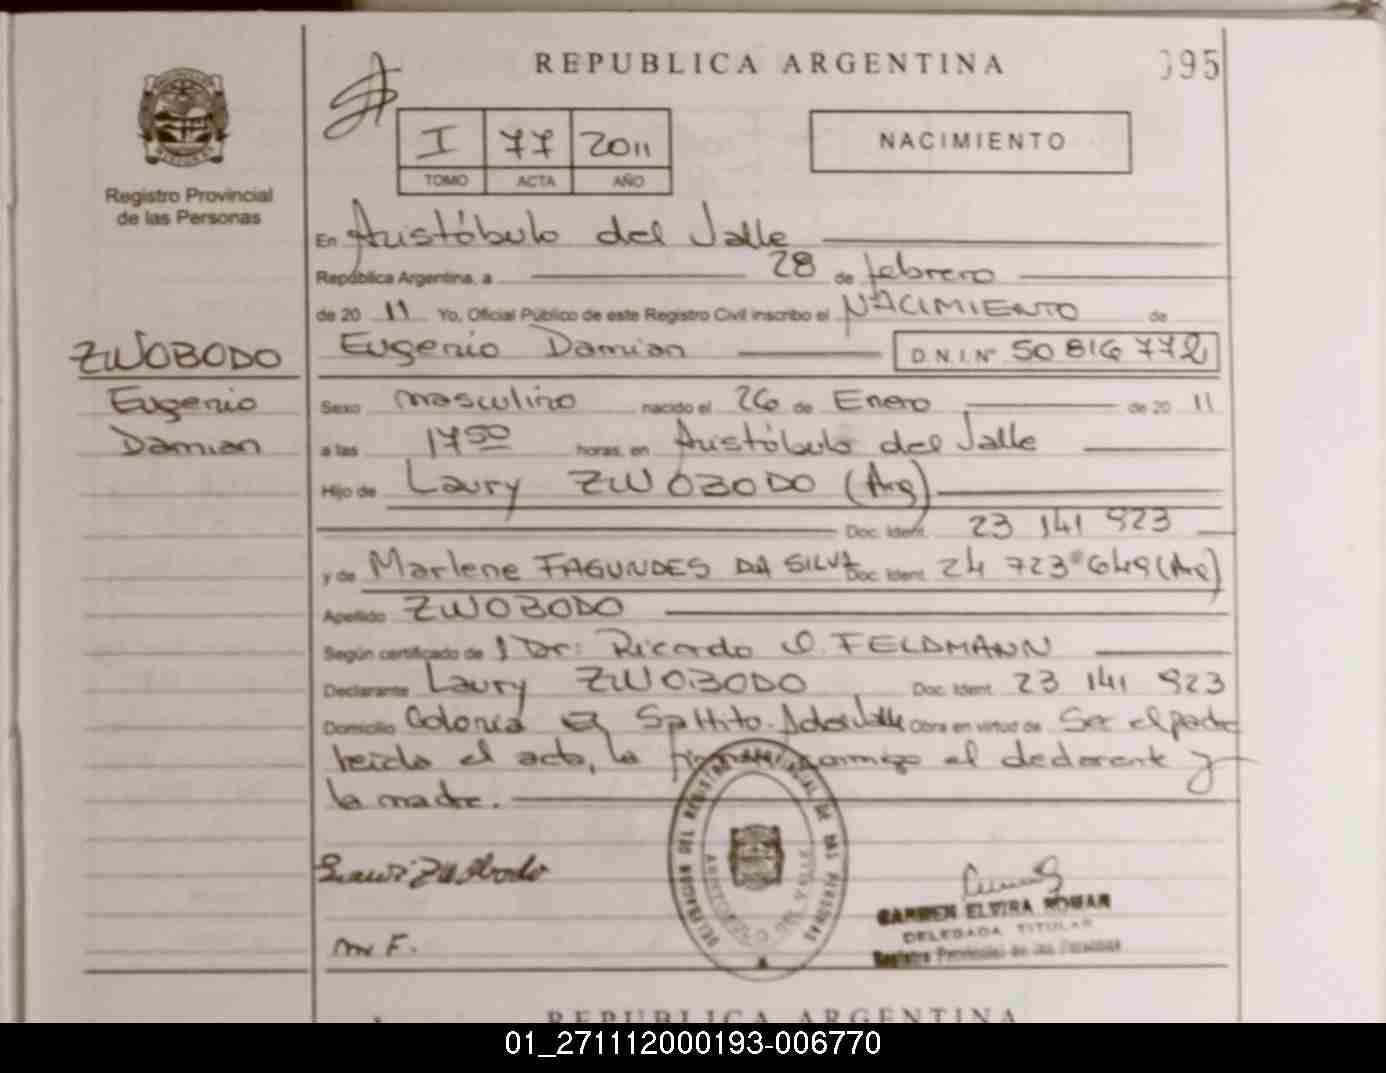 REPUBLICA ARGENTINA
095
I 77 2011
TOMO ACTA AÑO
NACIMIENTO
Registro Provincial
de las Personas
En Aristóbulo del Valle
República Argentina, a 28 de febrero
de 20 11 Yo, Oficial Público de este Registro Civil inscribo el NACIMIENTO de
ZWOBODO
Eugenio Damian D.N.I.Nº 50 816 772
Eugenio
Damian
Sexo masculino nacido el 26 de Enero de 20 11
a las 17 50 horas, en Aristóbulo del Valle
Hijo de Laury ZWOBODO (Arg)
Doc. Ident. 23 141 923
y de Marlene FAGUNDES DA SILVA Doc. Ident. 24 723 649 (Arg)
Apellido ZWOBODO
Según certificado de Dr: Ricardo O. FELDMANN
Declarante Laury ZWOBODO Doc. Ident. 23 141 923
Domicilio Colonia Obra en virtud de Ser el padre
leida el acta, la conmigo el declarante y
la madre.
DELEGACION DEL REGISTRO PROVINCIAL DE LAS PERSONAS
ARISTOBULO DEL VALLE
m F.
CARMEN ELVIRA ROMAN
DELEGADA TITULAR
Registro Provincial de las Personas
REPUBLICA ARGENTINA
01_271112000193-006770